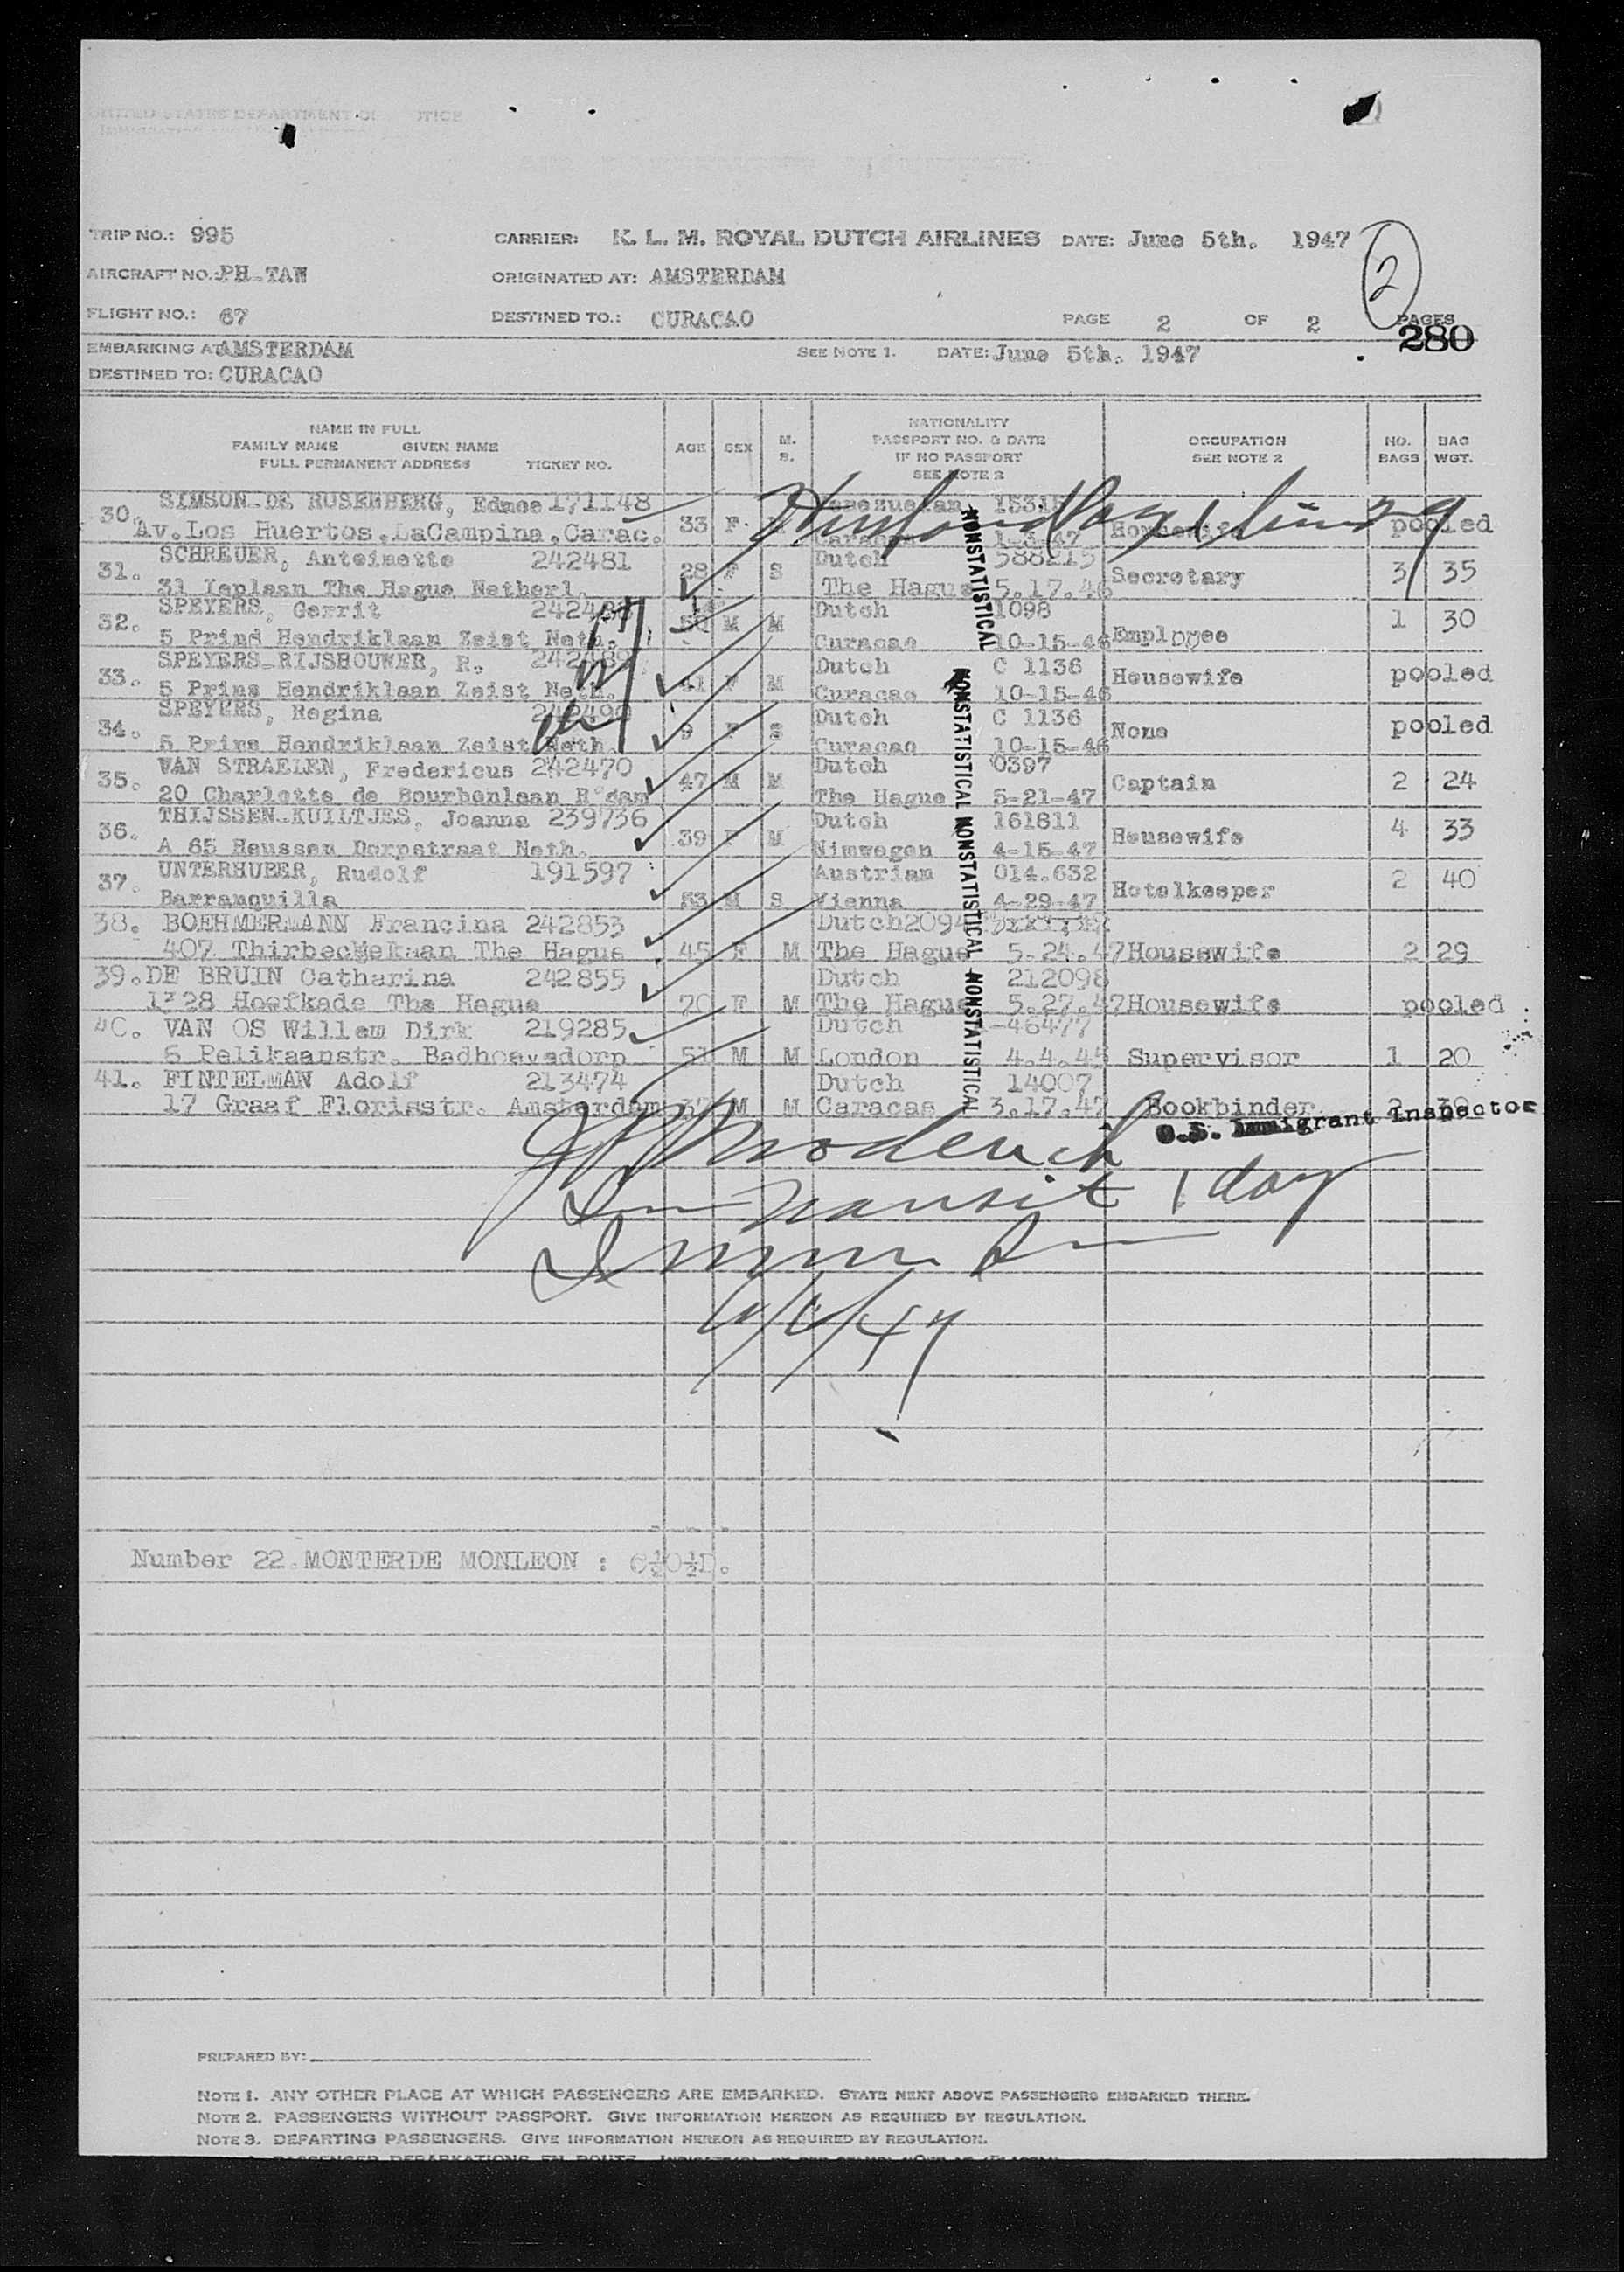 UNITED STATES DEPARTMENT OF JUSTICE
TRIP NO.: 995 CARRIER: K. L. M. ROYAL DUTCH AIRLINES DATE: June 5th. 1947
2
AIRCRAFT NO.: PH-TAW ORIGINATED AT: AMSTERDAM
FLIGHT NO.: 67 DESTINED TO.: CURACAO PAGE 2 OF 2 PAGES
280
EMBARKING AT AMSTERDAM SEE NOTE 1. DATE: June 5th. 1947
DESTINED TO: CURACAO
NAME IN FULL
FAMILY NAME GIVEN NAME
FULL PERMANENT ADDRESS TICKET NO.
AGE SEX M. S.
NATIONALITY
PASSPORT NO. & DATE
IF NO PASSPORT
SEE NOTE 2
OCCUPATION
SEE NOTE 2
NO. BAGS
BAG WGT.
30. SIMSON-DE ROSENBERG, Edmee 171148 33 F Venezuelan Housewife pooled
Av.Los Huertos.LaCampina,Carac. Caracas 1-3-47
31. SCHREUER, Antoinette 242481 28 F S Dutch 588215 Secretary 3 35
31 Ieplaan The Hague Netherl. The Hague 5.17.46
32. SPEYERS, Gerrit M M Dutch 1098 Employee 1 30
5 Prins Hendriklaan Zeist Neth. Curacao 10-15-46
33. SPEYERS-RIJSHOUWER, R. 242489 41 F M Dutch C 1136 Housewife pooled
5 Prins Hendriklaan Zeist Neth. Curacao 10-15-46
34. SPEYERS, Regina 242490 9 F S Dutch C 1136 None pooled
5 Prins Hendriklaan Zeist Neth. Curacao 10-15-46
35. VAN STRAELEN, Fredericus 242470 47 M M Dutch 0397 Captain 2 24
20 Charlotte de Bourbonlaan R'dam The Hague 5-21-47
36. THIJSSEN-KUILTJES, Joanna 239736 39 F M Dutch 161811 Housewife 4 33
A 65 Heussen Dorpstraat Neth. Nimwegen 4-15-47
37. UNTERHUBER, Rudolf 191597 53 M S Austrian 014.632 Hotelkeeper 2 40
Barranquilla Vienna 4-29-47
38. BOEHMERMANN Francina 242853 Dutch
407 The Hague 45 F M The Hague 5.24.47 Housewife 2 29
39. DE BRUIN Catharina 242855 Dutch 212098
1328 Hoefkade The Hague 70 F M The Hague 5.27.47 Housewife pooled
40. VAN OS Willem Dirk 219285 Dutch 46477
6 Pelikaanstr. Badhoevedorp 51 M M London Supervisor 1 20
41. FINTELMAN Adolf 213474 Dutch 14007
17 Graaf Florisstr. Amsterdam 37 M M Caracas 3.17.47 Bookbinder 2 30
NONSTATISTICAL
NONSTATISTICAL
NONSTATISTICAL
NONSTATISTICAL
U.S. Immigrant Inspector
In transit 1 day
6/6/47
Number 22 MONTERDE MONLEON : C½O½D.
PREPARED BY:
NOTE 1. ANY OTHER PLACE AT WHICH PASSENGERS ARE EMBARKED. STATE NEXT ABOVE PASSENGERS EMBARKED THERE.
NOTE 2. PASSENGERS WITHOUT PASSPORT. GIVE INFORMATION HEREON AS REQUIRED BY REGULATION.
NOTE 3. DEPARTING PASSENGERS. GIVE INFORMATION HEREON AS REQUIRED BY REGULATION.